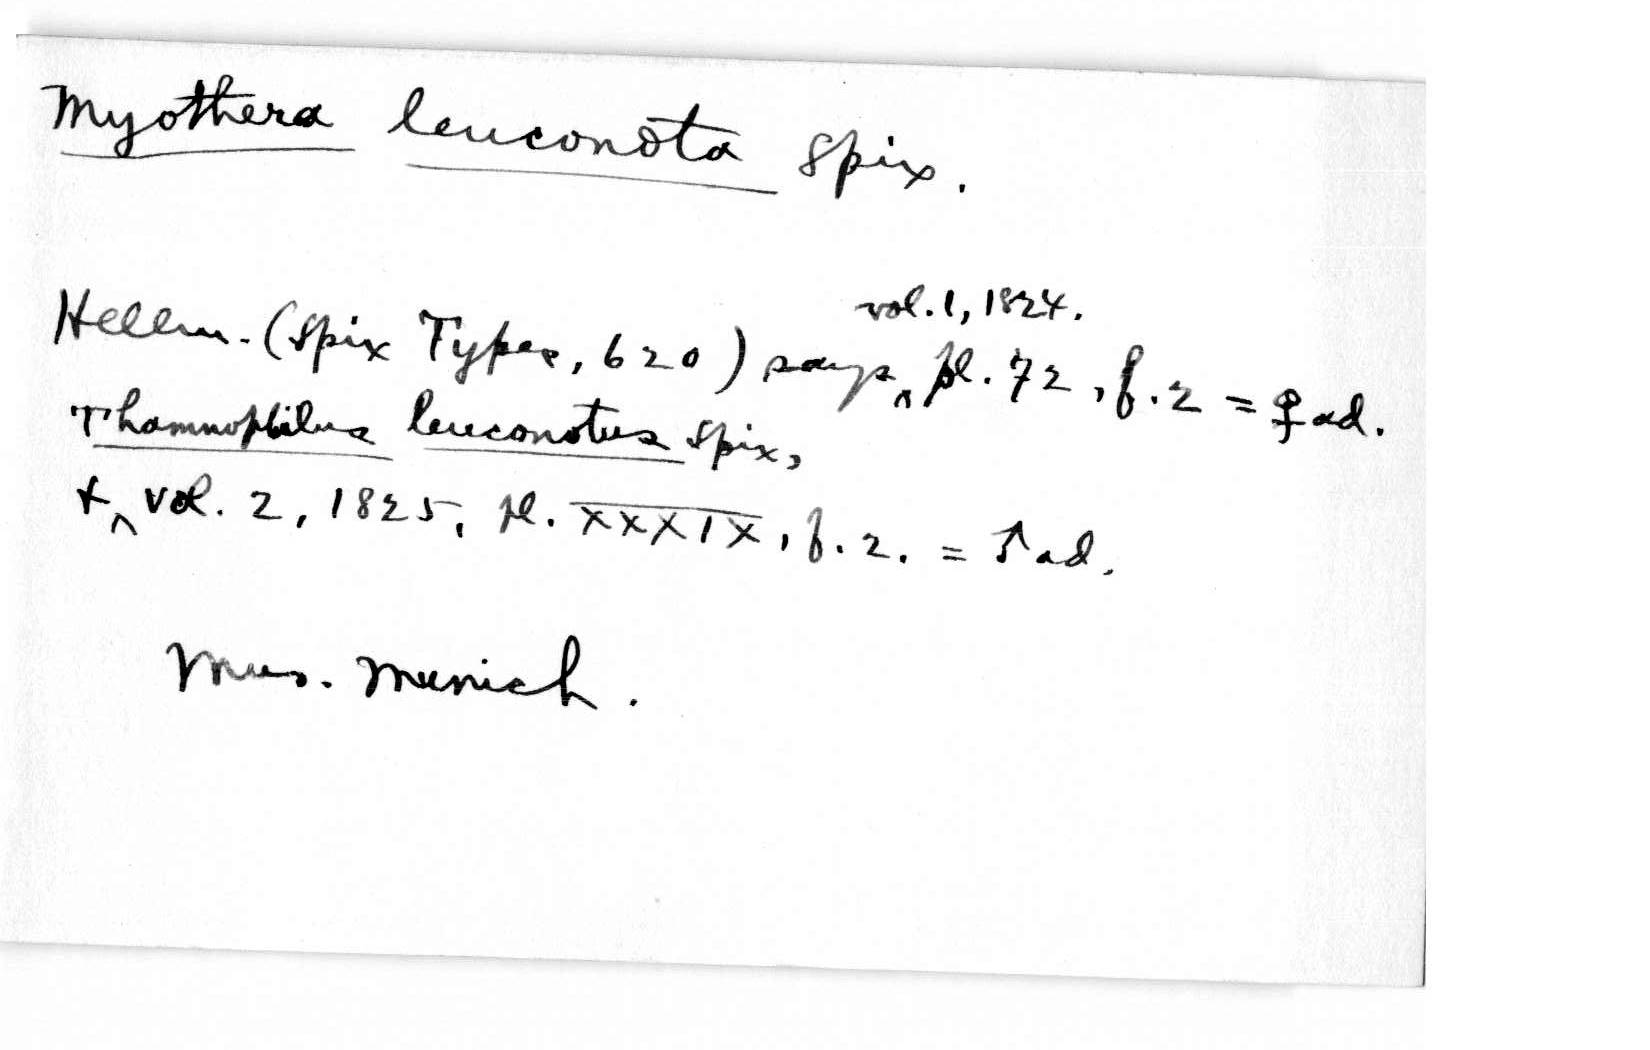 Myothera leuconota Spix.
vol. 1, 1824.
Hellm. (Spix Types, 620) says ^ pl. 72, f. 2 = ♀ ad.
Thamnophilus leuconotus Spix,
+ ^ vol. 2, 1825, pl. XXXIX, f. 2. = ♂ ad.
Mus. Munich.